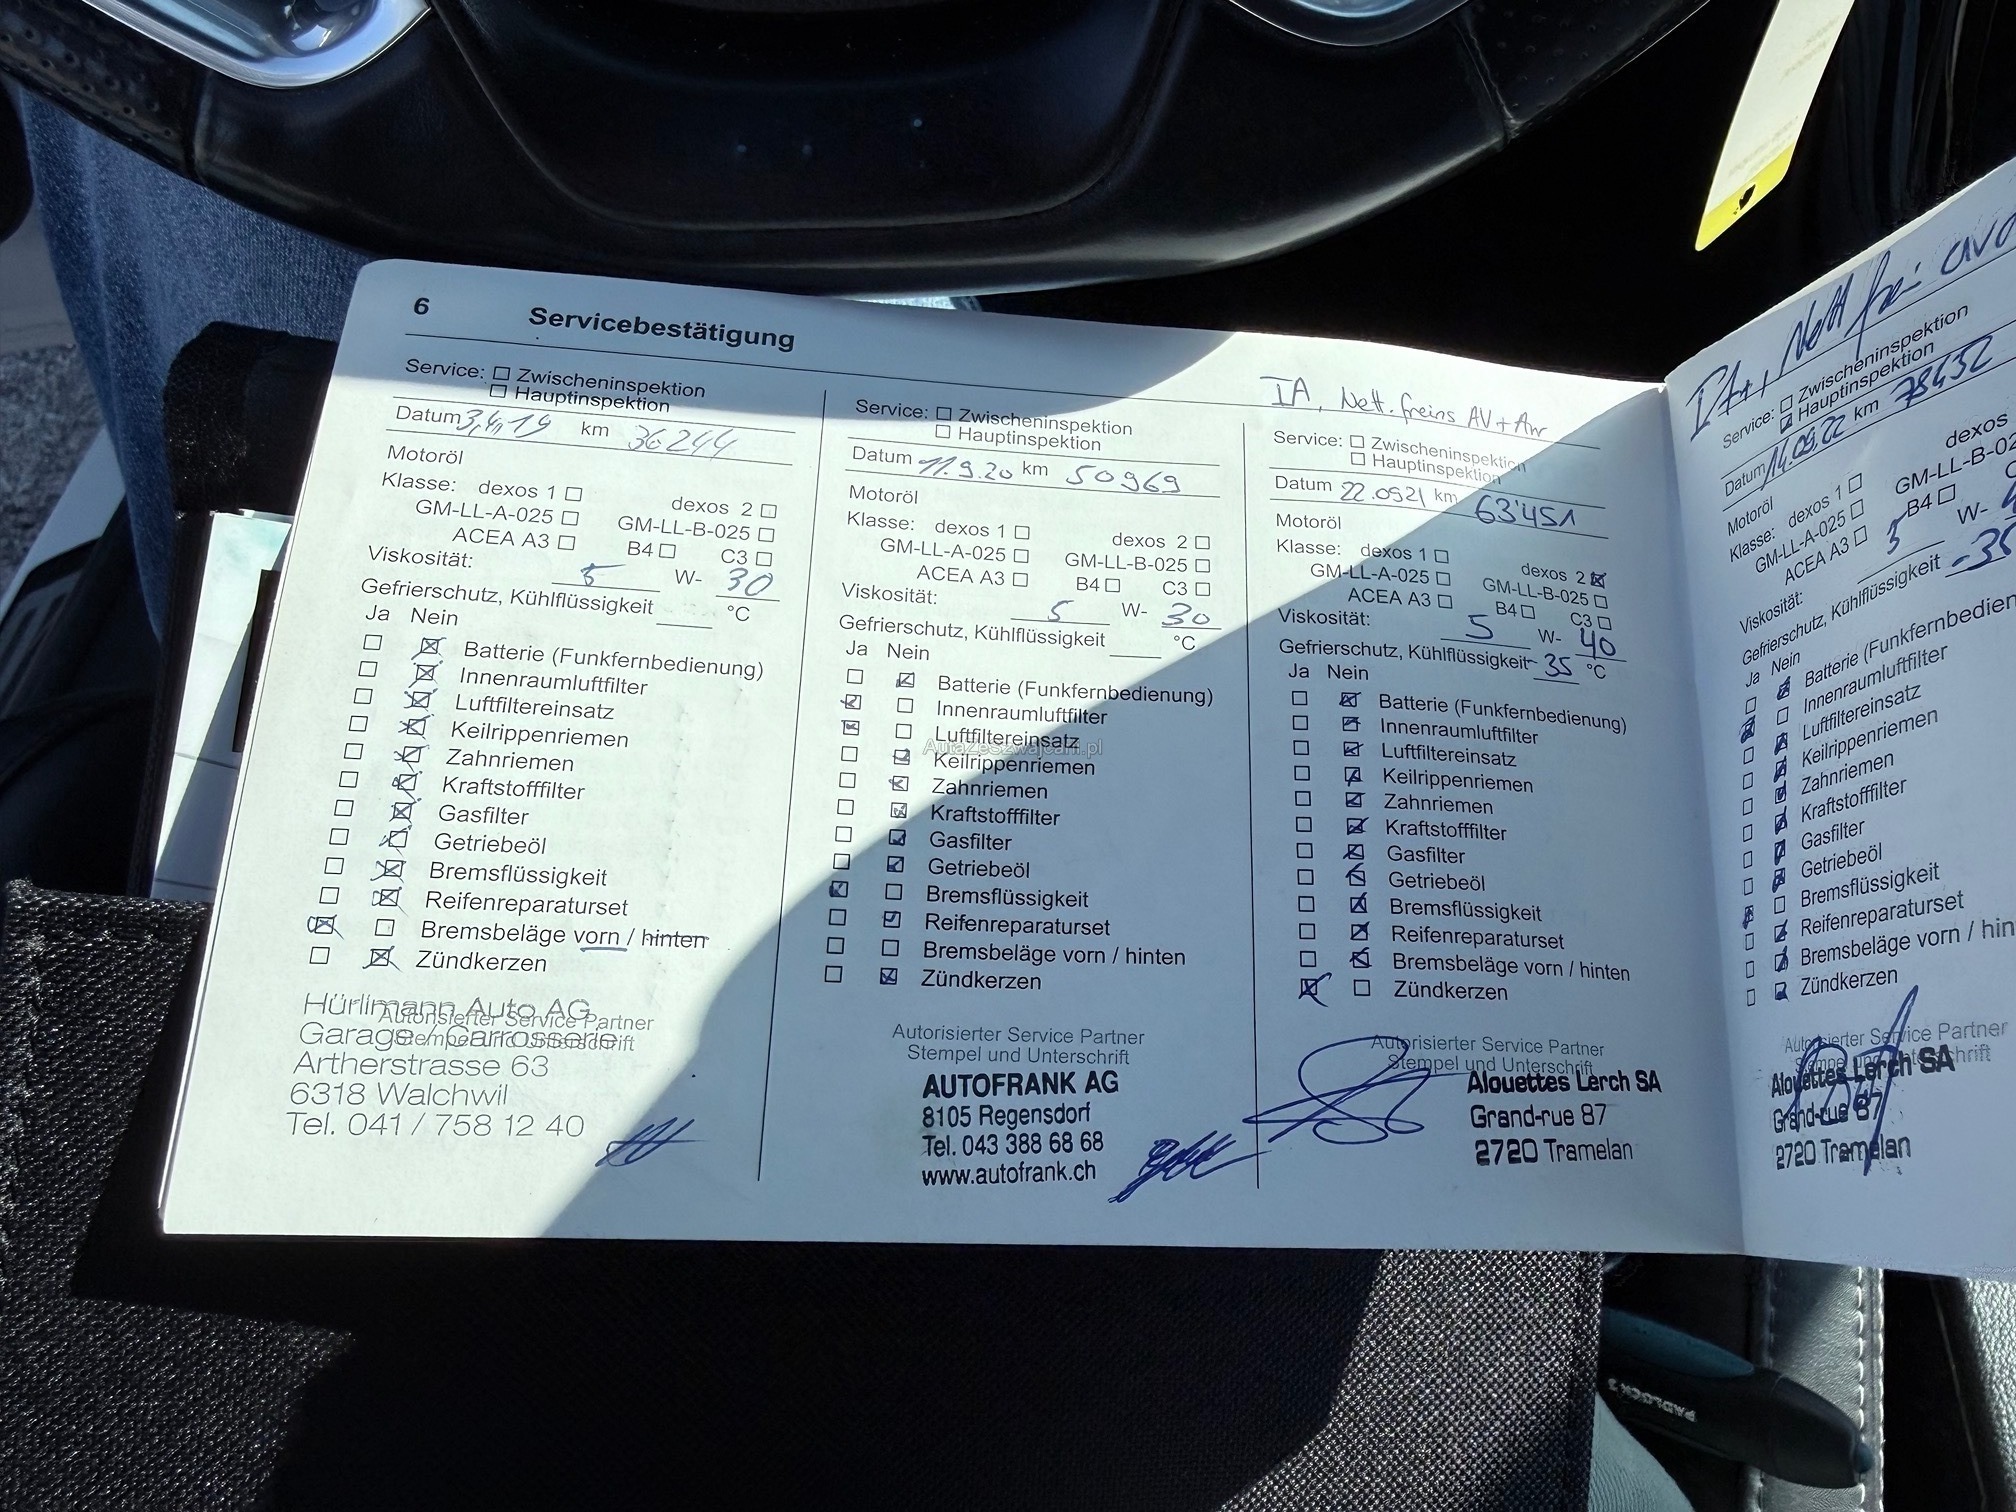 6 Servicebestätigung
Service: Zwischeninspektion
Hauptinspektion
Datum 3,4,19 km 36244
Motoröl
Klasse: dexos 1 dexos 2
GM-LL-A-025 GM-LL-B-025
ACEA A3 B4 C3
Viskosität: 5 W- 30
Gefrierschutz, Kühlflüssigkeit °C
Ja Nein
Batterie (Funkfernbedienung)
Innenraumluftfilter
Luftfiltereinsatz
Keilrippenriemen
Zahnriemen
Kraftstofffilter
Gasfilter
Getriebeöl
Bremsflüssigkeit
Reifenreparaturset
Bremsbeläge vorn / hinten
Zündkerzen
Autorisierter Service Partner
Stempel und Unterschrift
Hürlimann Auto AG
Garage / Carrosserie
Artherstrasse 63
6318 Walchwil
Tel. 041 / 758 12 40
Service: Zwischeninspektion
Hauptinspektion
Datum 11.9.20 km 50969
Motoröl
Klasse: dexos 1 dexos 2
GM-LL-A-025 GM-LL-B-025
ACEA A3 B4 C3
Viskosität: 5 W- 30
Gefrierschutz, Kühlflüssigkeit °C
Ja Nein
Batterie (Funkfernbedienung)
Innenraumluftfilter
Luftfiltereinsatz
AutaZeSzwajcarii.pl
Keilrippenriemen
Zahnriemen
Kraftstofffilter
Gasfilter
Getriebeöl
Bremsflüssigkeit
Reifenreparaturset
Bremsbeläge vorn / hinten
Zündkerzen
Autorisierter Service Partner
Stempel und Unterschrift
AUTOFRANK AG
8105 Regensdorf
Tel. 043 388 68 68
www.autofrank.ch
IA, Nett. freins AV + Arr
Service: Zwischeninspektion
Hauptinspektion
Datum 22.0921 km 63'451
Motoröl
Klasse: dexos 1 dexos 2
GM-LL-A-025 GM-LL-B-025
ACEA A3 B4 C3
Viskosität: 5 W- 40
Gefrierschutz, Kühlflüssigkeit -35 °C
Ja Nein
Batterie (Funkfernbedienung)
Innenraumluftfilter
Luftfiltereinsatz
Keilrippenriemen
Zahnriemen
Kraftstofffilter
Gasfilter
Getriebeöl
Bremsflüssigkeit
Reifenreparaturset
Bremsbeläge vorn / hinten
Zündkerzen
Autorisierter Service Partner
Stempel und Unterschrift
Alouettes Lerch SA
Grand-rue 87
2720 Tramelan
Nett frei
Service: Zwischeninspektion
Hauptinspektion
Datum 14.09.22 km 78432
Motoröl
Klasse: dexos 1 dexos
GM-LL-A-025 GM-LL-B-02
ACEA A3 B4
Viskosität: 5 W-
Gefrierschutz, Kühlflüssigkeit -35
Ja Nein
Batterie (Funkfernbedienun
Innenraumluftfilter
Luftfiltereinsatz
Keilrippenriemen
Zahnriemen
Kraftstofffilter
Gasfilter
Getriebeöl
Bremsflüssigkeit
Reifenreparaturset
Bremsbeläge vorn / hin
Zündkerzen
Autorisierter Service Partner
Stempel und Unterschrift
Alouettes Lerch SA
Grand-rue 87
2720 Tramelan
PADLOCK 3